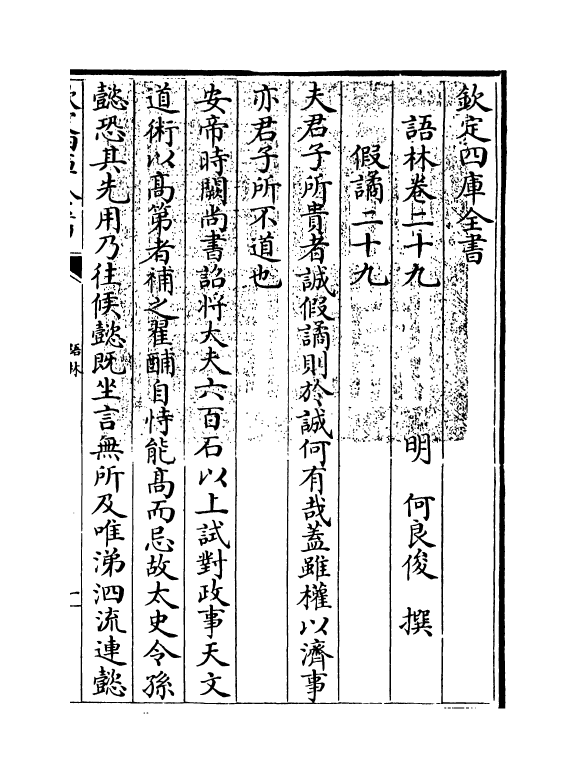 欽定四庫全書
語林卷二十九　明　何良俊　撰
假譎二十九
夫君子所貴者誠假譎則於誠何有哉蓋雖權以濟事
亦君子所不道也
安帝時闕尚書詔將大夫六百石以上試對政事天文
道術以髙第者補之翟酺自恃能髙而忌故太史令孫
懿恐其先用乃往候懿既坐言無所及唯涕泗流連懿
語林